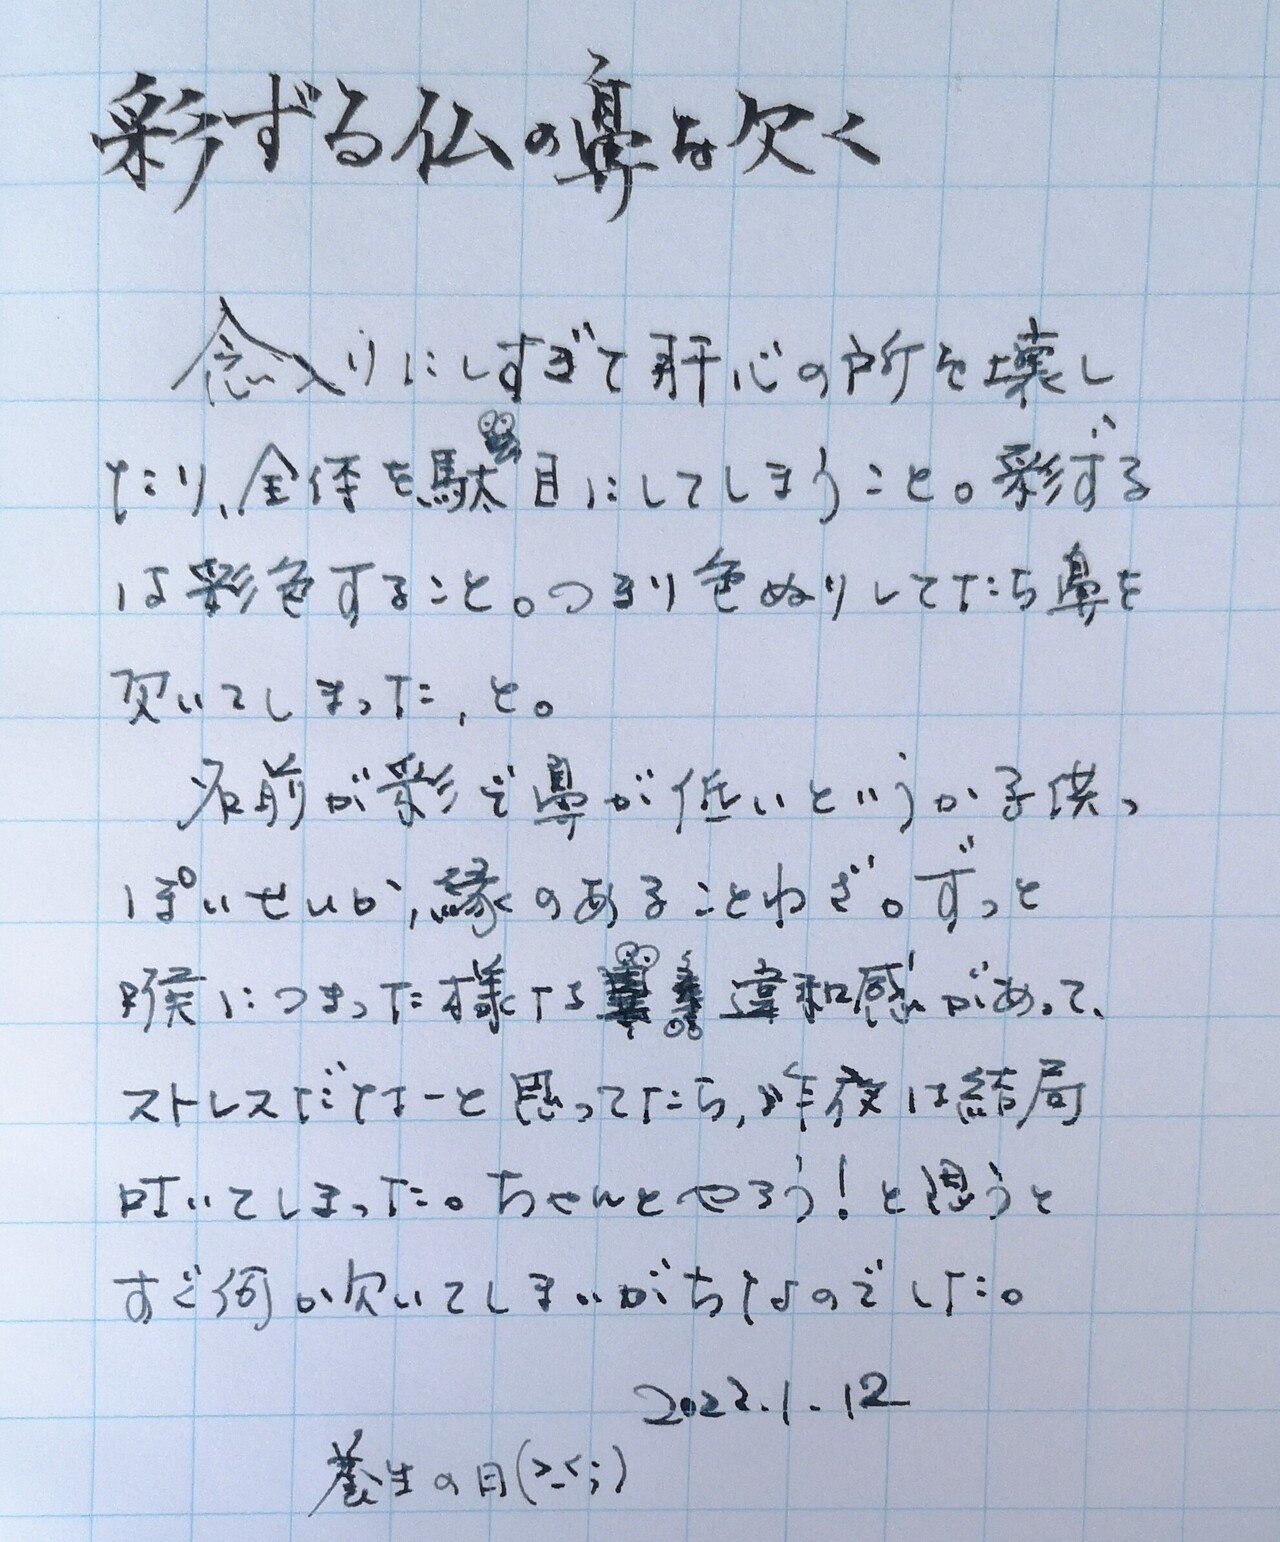 彩ずる仏の鼻を欠く
念入りにしすぎて肝心の所を壊し
たり、全体を駄目にしてしまうこと。彩ずる
は彩色すること。つまり色ぬりしてたら鼻を
欠いてしまった、と。
名前が彩で鼻が低いというか子供っ
ぽいせいか、縁のあることわざ。ずっと
喉につまった様な違和感があって、
ストレスだなーと思ってたら、昨夜は結局
吐いてしまった。ちゃんとやろう!と思うと
すぐ何か欠いてしまいがちなのでした。
2022.1.12
養生の日(>_<;)